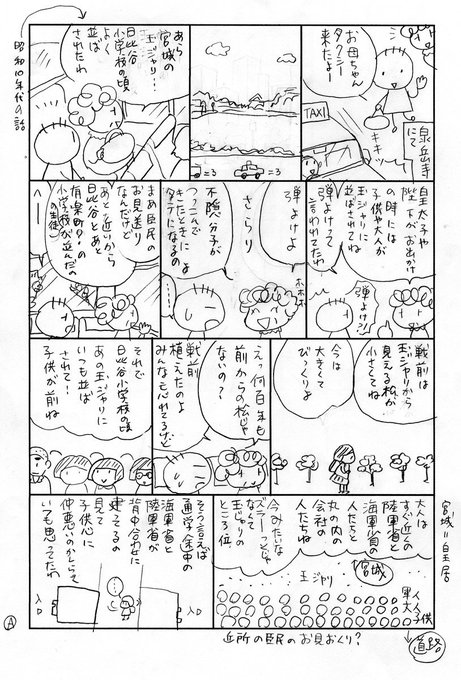 昭和10年代の話
泉岳寺
にて
お母ちゃん
タクシー
来たよー
TAXI
キキッ
=3
=3
あら
宮城の
玉ジャリ…
日比谷
小学校の頃
よく
並ば
されたわ
皇太子や
陛下がお出かけ
の時には
子供や大人が
玉ジャリに
並ばされてね
弾よけよって
言われてたわ
弾よけ?!
弾よけよ
さらり
不隠分子が
つっこんで
きたときに
タテになるの
ホホホ
まあ臣民の
お見送り
なんだけど
あと近いから
日比谷とあと
有楽町?の
小学校が並んだの
の生徒
へー
戦前は
玉ジャリから
見える松が
小さくてね
今は
大きくて
びっくりよ
えっ何百年も
前からの松じゃ
ないの?
戦前
植えたのよ
みんな忘れてるけど
それで
日比谷小学校の頃
あの玉ジャリに
いつも並ば
されて…
子供が前ね
大人は
すぐ近くの
陸軍省の
海軍省の
人たちと
丸の内の
会社の
人たちね
今みたいな
ズラーっとじゃ
なくて
玉ジャリの
ところ位
宮城
玉ジャリ
軍人
大人
子供
道路
宮城=皇居
近所の臣民のお見おくり?
そういえば
通学途中の
陸軍省と
海軍省が
背中合わせに
建ってるの
見て
子供心に
仲悪いのかしらって
いつも思ってたわ
入口
入口
A